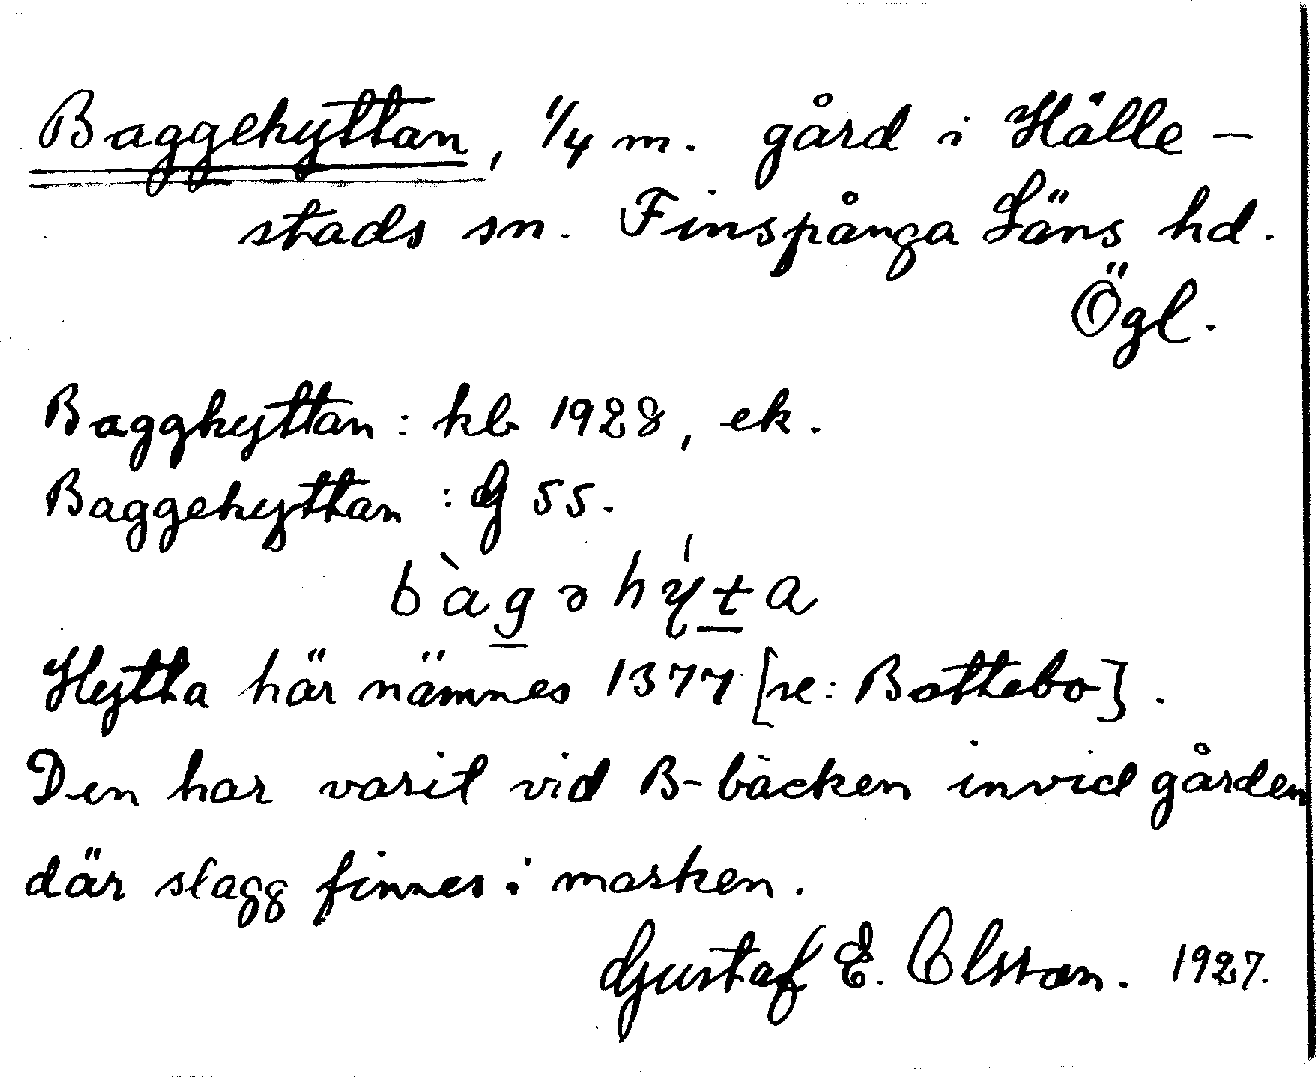 Baggehyttan, 1/4 m. gård i Hälle-
stads sn. Finspånga Läns hd.
Ögl.
Bagghyttan: kb 1928, ek.
Baggehyttan: G 55.
bàgəhý́ta
Hytta här nämnes 1377 [se: Bottebo].
Den har varit vid B-bäcken invid gården
där slagg finnes i marken.
Gustaf E. Olsson. 1927.